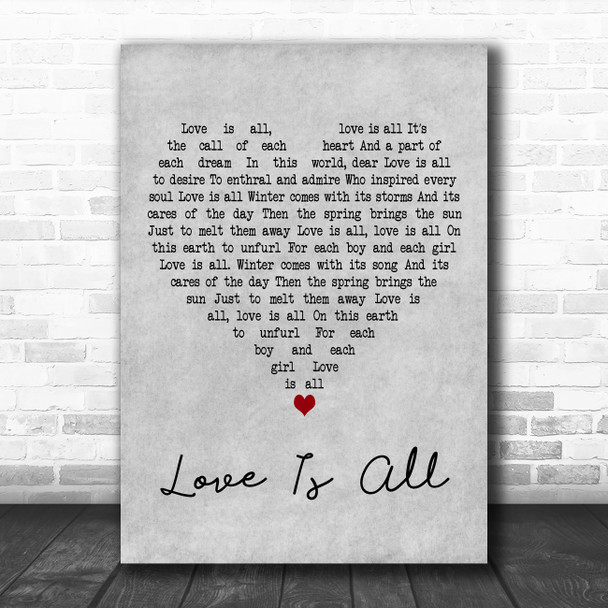 Love is all, love is all It's
the call of each heart And a part of
each dream In this world, dear Love is all
to desire To enthral and admire Who inspired every
soul Love is all Winter comes with its storms And its
cares of the day Then the spring brings the sun
Just to melt them away Love is all, love is all On
this earth to unfurl For each boy and each girl
Love is all. Winter comes with its song And its
cares of the day Then the spring brings the
sun Just to melt them away Love is
all, love is all On this earth
to unfurl For each
boy and each
girl Love
is all
Love Is All